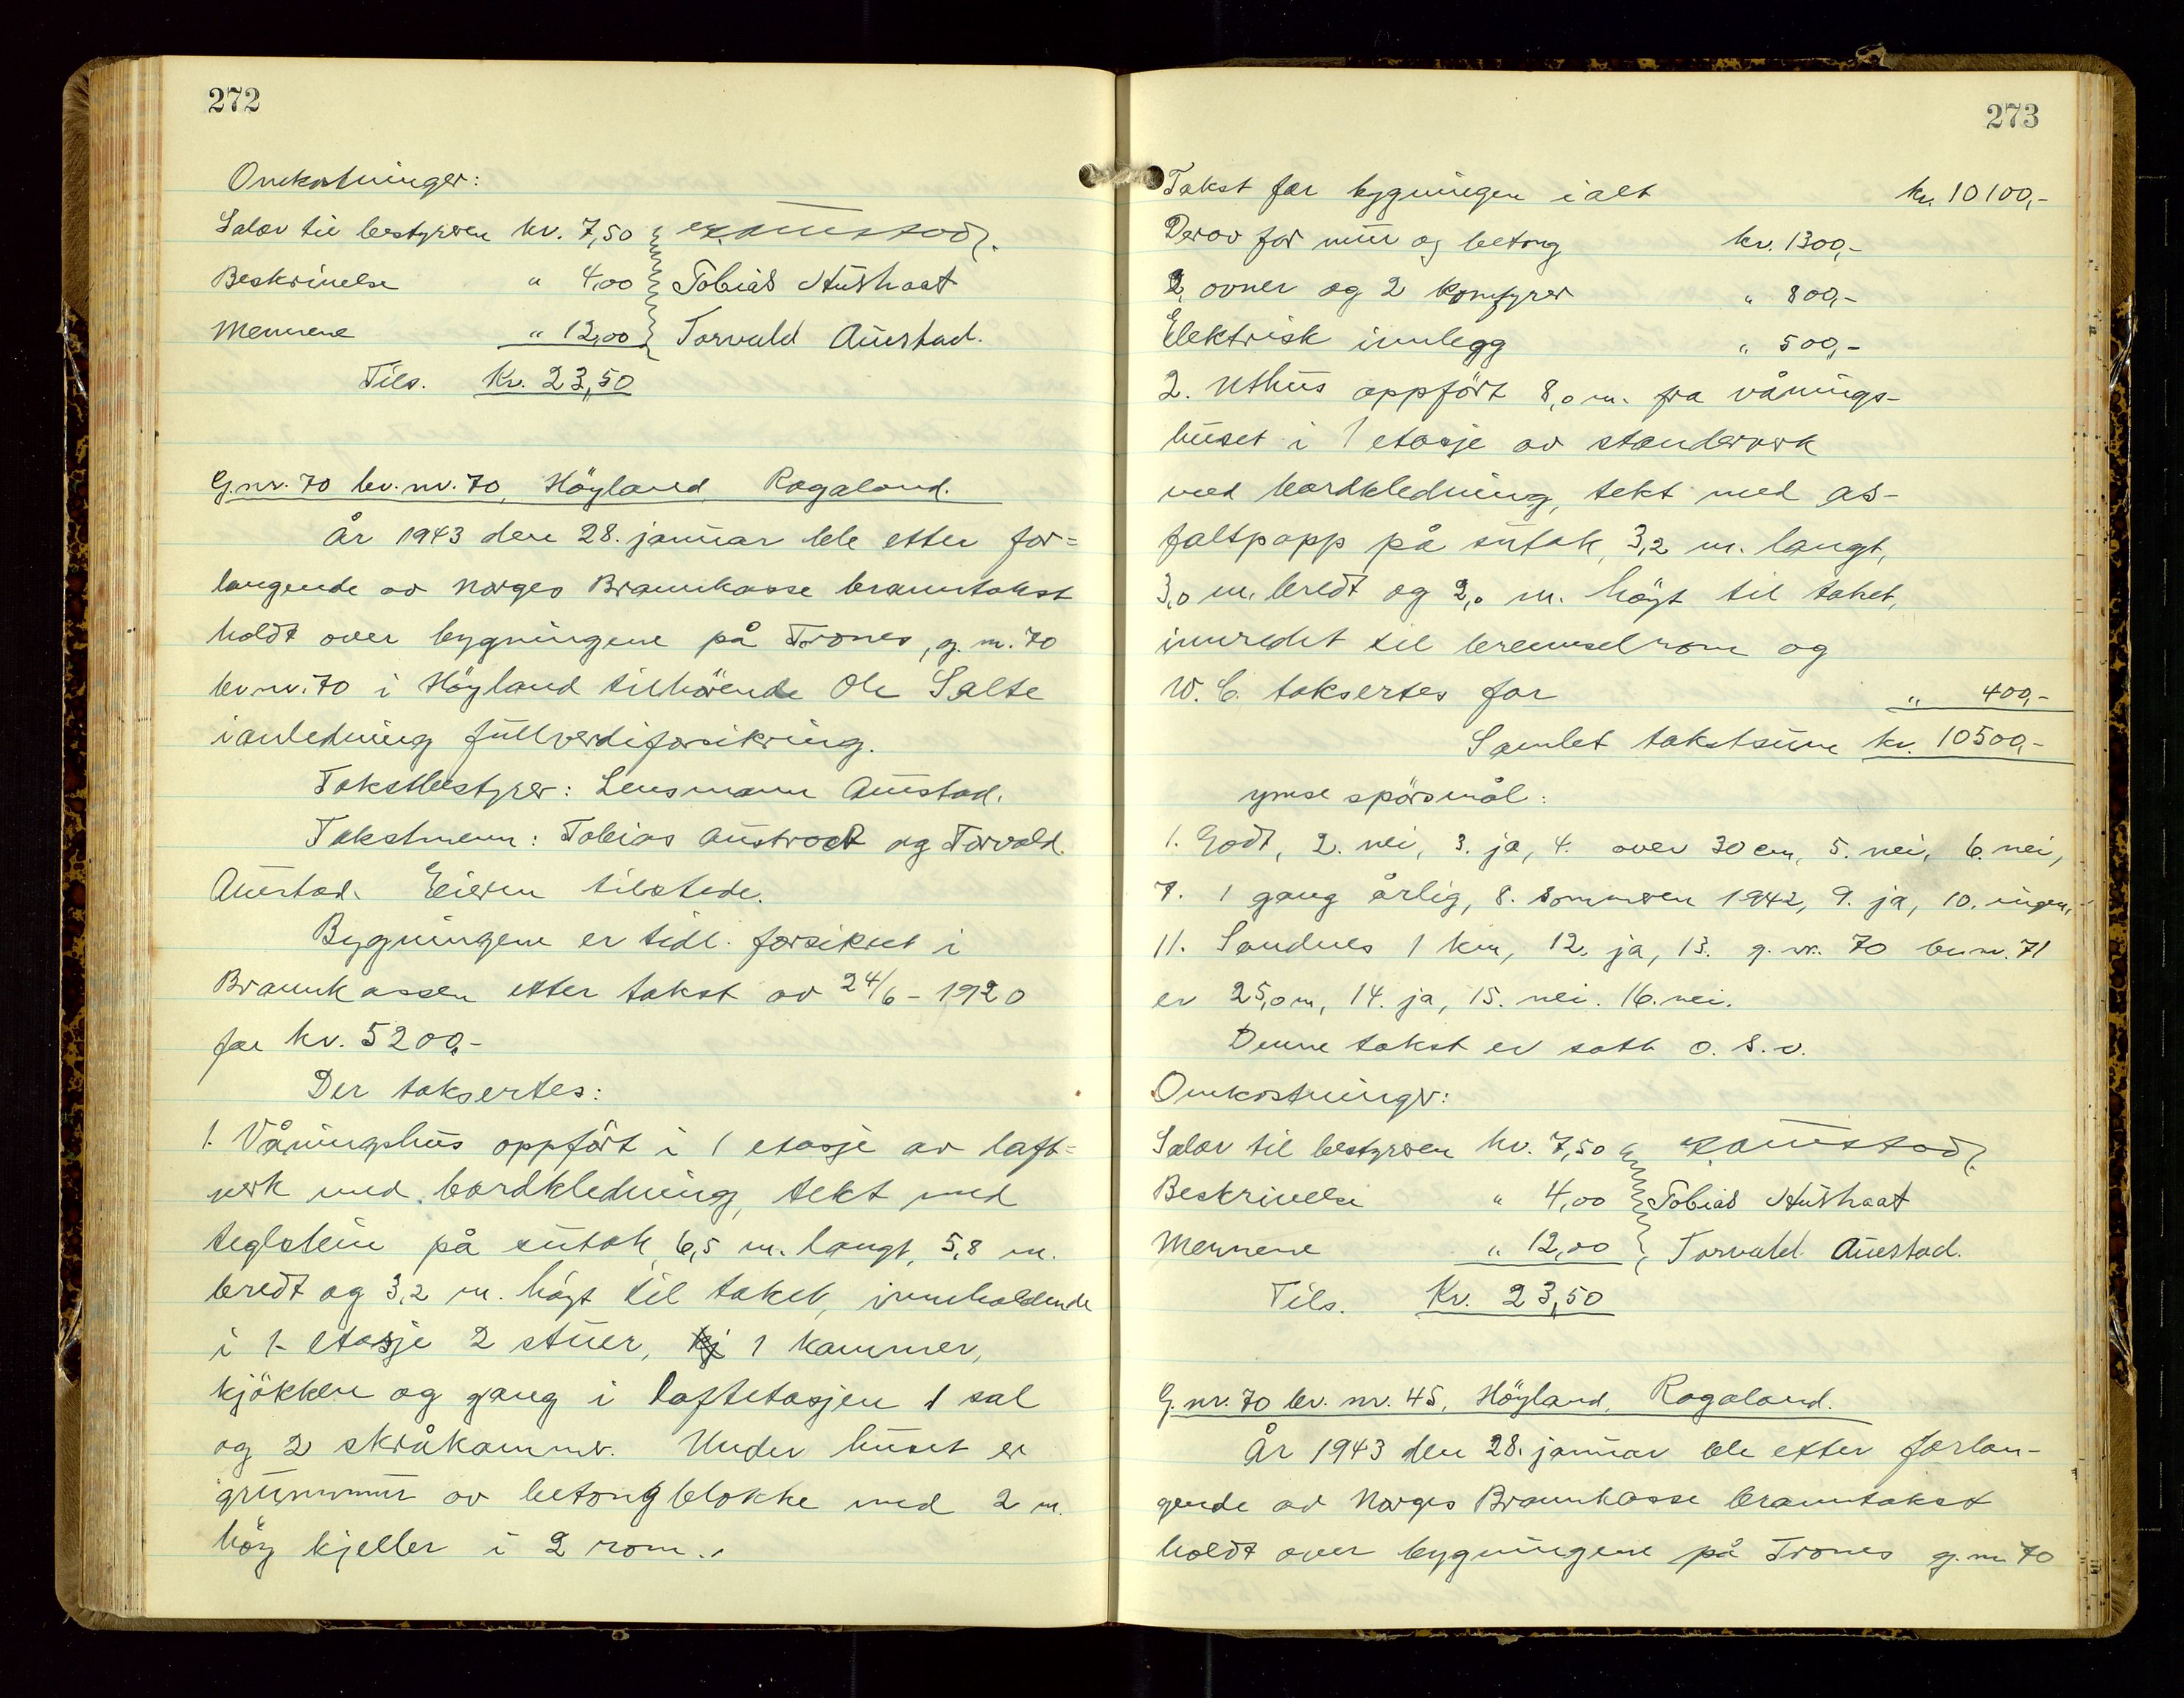 272
Omkostninger:
Salær til bestyreren kr. 7,50
Beskrivelse " 4,00 Tobias Austraat
Mennene " 12,00 Torvald Auestad.
Tils. Kr. 23,50
G.nr. 70 br.nr. 70, Höyland, Rogaland.
År 1943 den 28. januar ble etter for=
langende av Norges Brannkasse branntakst
holdt over bygningene på Trones, g.nr. 70
br.nr. 70 i Höyland tilhörende Ole Salte
i anledning fullverdiforsikring.
Takstbestyrer: Lensmann Auestad.
Takstmenn: Tobias Austraat og Torvald
Auestad. Eieren tilstede.
Bygningene er tidl. forsikret i
Brannkassen etter takst av 24/6 - 1920
for kr. 5200,-
Der taksertes:
1. Våningshus oppfört i 1 etasje av laft=
verk med bordkledning, tekt med
teglstein på sutak, 6,5 m. langt, 5,8 m.
bredt og 3,2 m. höyt til taket, inneholdende
i 1. etasje 2 stuer, 1 kammer,
kjökken og gang i loftetasjen 1 sal
og 2 skråkammer. Under huset er
grunnmur av betongblokke med 2 m.
höy kjeller i 2 rom.
273
Takst for bygningen ialt kr. 10100,-
Derav for mur og betong kr. 1300,-
2 ovner og 2 komfyrer " 800,-
Elektrisk innlegg " 500,-
2. Uthus oppfört 8,0 m. fra vånings-
huset i 1 etasje av standerverk
med bordkledning, tekt med as-
faltpapp på sutak, 3,2 m. langt,
3,0 m. bredt og 2,0 m. höyt til taket,
innredet til brenselrom og
W.C. taksertes for " 400,-
Samlet takstsum kr. 10500,-
Ymse spörsmål:
1. Godt, 2. nei, 3. ja, 4. over 30 cm, 5. nei, 6. nei,
7. 1 gang årlig, 8. sommeren 1942, 9. ja, 10. ingen,
11. Sandnes 1 km, 12. ja, 13. g.nr. 70 br.nr. 71
er 25,0 m, 14. ja, 15. nei. 16. nei.
Denne takst er satt o.s.v.
Omkostninger:
Salær til bestyreren kr. 7,50
Beskrivelse " 4,00 Tobias Austraat
Mennene " 12,00 Torvald Auestad.
Tils. Kr. 23,50
G.nr. 70 br.nr. 45, Höyland, Rogaland.
År 1943 den 28. januar ble etter forlan-
gende av Norges Brannkasse branntakst
holdt over bygningene på Trones g.nr 70